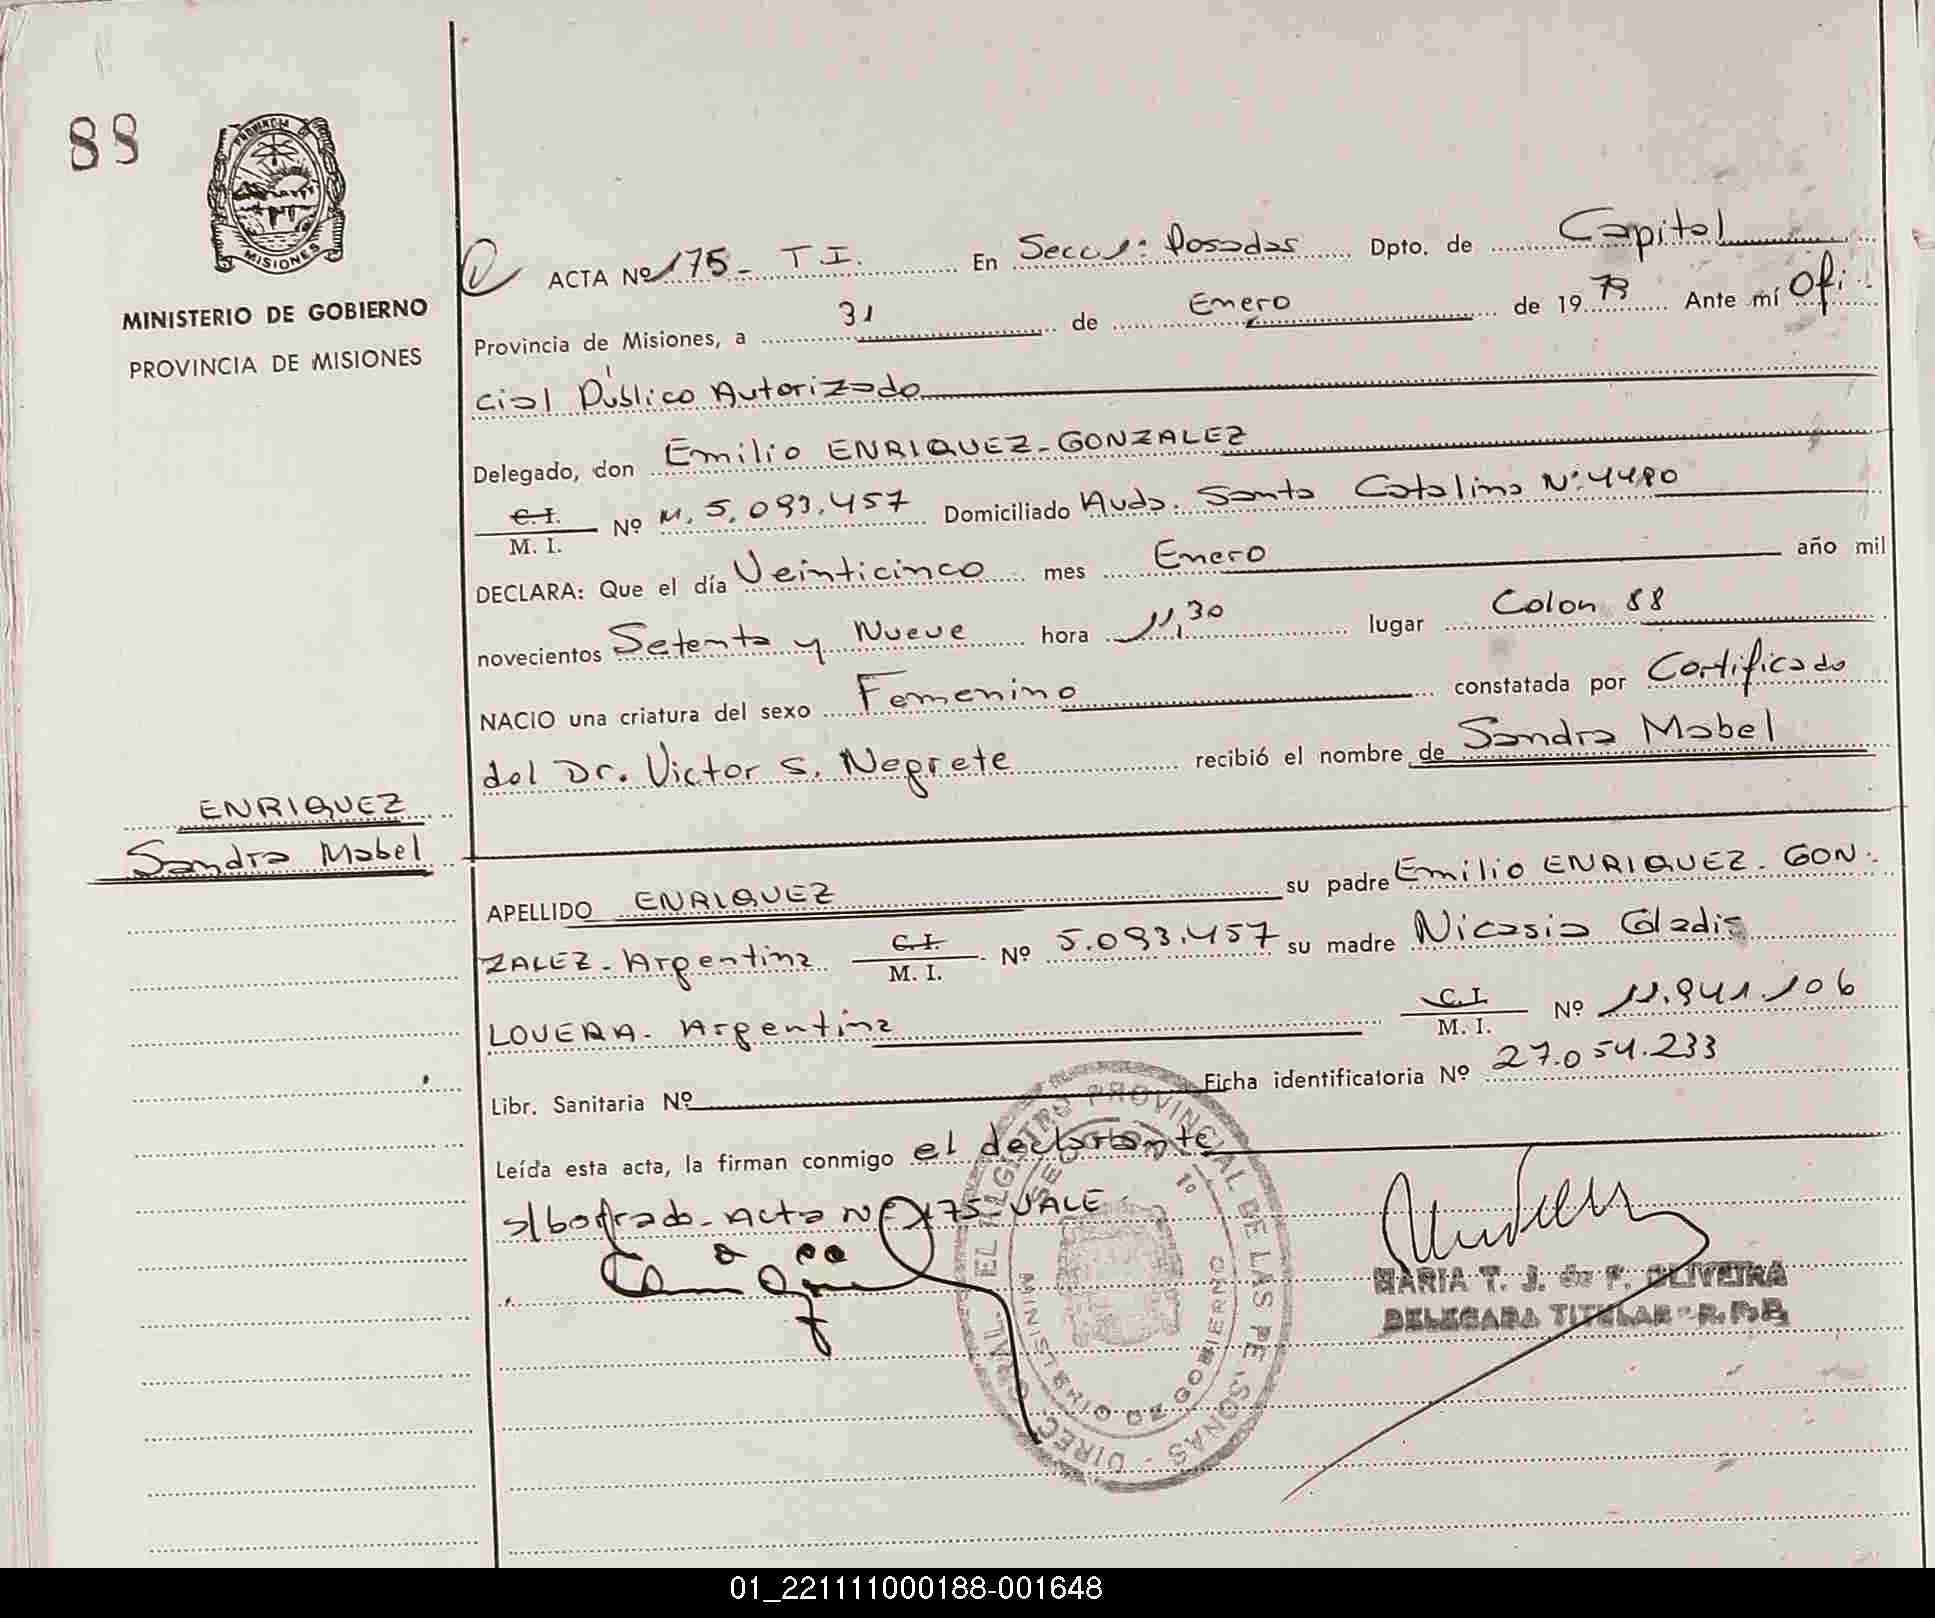 88
PROVINCIA DE
MISIONES
MINISTERIO DE GOBIERNO
PROVINCIA DE MISIONES
ENRIQUEZ
Sandra Mabel
ACTA Nº 175- T I. En Secc 1: Posadas Dpto. de Capital
Provincia de Misiones, a 31 de Enero de 1979 Ante mí Ofi
cial Público Autorizado
Delegado, don Emilio ENRIQUEZ-GONZALEZ
C.I. / M. I. Nº M. 5.093.457 Domiciliado Avda. Santa Catalina Nº 4490
DECLARA: Que el día Veinticinco mes Enero año mil
novecientos Setenta y Nueve hora 11,30 lugar Colon 88
NACIO una criatura del sexo Femenino constatada por Certificado
del Dr. Victor S. Negrete recibió el nombre de Sandra Mabel
APELLIDO ENRIQUEZ su padre Emilio ENRIQUEZ-GON-
ZALEZ- Argentina C.I. / M. I. Nº 5.093.457 su madre Nicasia Gladis
LOVERA- Argentina C.I. / M. I. Nº 11.941.106
Libr. Sanitaria Nº Ficha identificatoria Nº 27.054.233
Leída esta acta, la firman conmigo el declarante
s/borrado- Acta Nº 175- VALE
MARIA T. J. de F. OLIVEIRA
DELEGADA TITULAR - R.P.P.
DIREC GRAL. EL REGISTRO PROVINCIAL DE LAS PERSONAS
MINISTERIO DE GOBIERNO
01_221111000188-001648